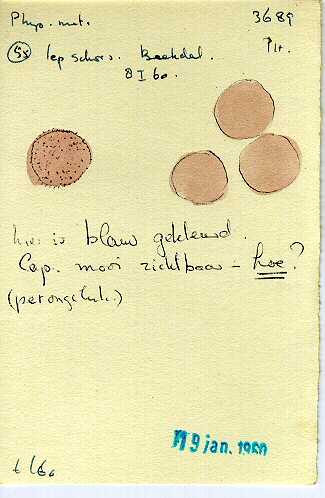 Phys. nut. 3689
55 iep schors. Beekdal. Plt.
8 I 60.
hier is blauw gekleurd.
Cap. mooi zichtbaar - hoe?
(per ongeluk.)
19 jan. 1960